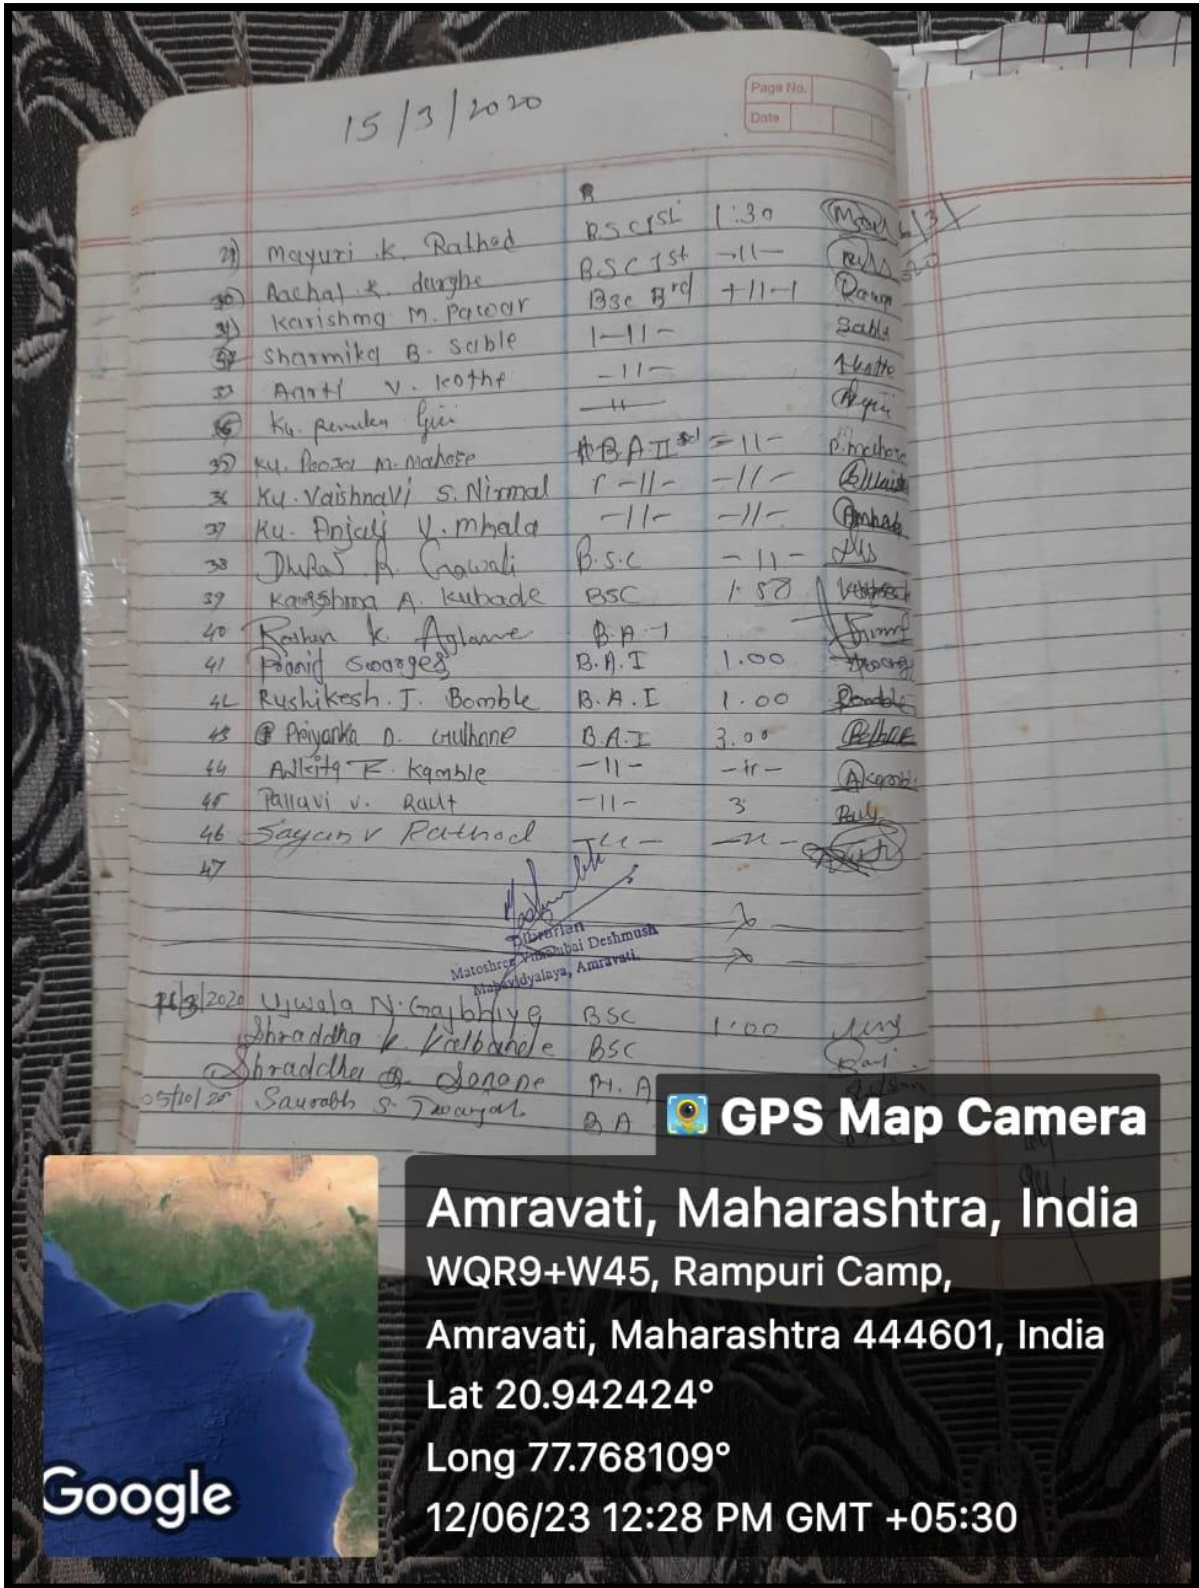 15/3/2020
Page No.
Date
29) Mayuri K. Rathod BSC 1st 1:30
30) Aachal K. darghe BSC 1st -11-
31) Karishma M. Pawar Bsc 3rd -11-
32 Sharmika B. Sable -11- Sable
33 Aarti V. Kothe -11- Kothe
Ku. Giri -11-
35) Ku. Pooja M. Mahore B.A II -11- P. mahore
36 Ku. Vaishnavi S. Nirmal -11- -11-
37 Ku. Anjali V. mhala -11- -11-
38 Dhiraj R. Gawali B.S.C -11-
39 Karishma A. Kubade BSC
40 Roshan K. Aglawe B.A-I
41 B.A.I 1.00
42 Rushikesh. J. Bomble B.A.I 1.00 Bomble
43 Priyanka D. Gulhane B.A.I 3.00
44 Ankita K. Kamble -11- -11- Akamble
45 Pallavi V. Raut -11- 3
46 Sayan V Rathod -11- -11-
47
Librarian
Matoshree Vimalabai Deshmukh
Mahavidyalaya, Amravati.
/3/2020 Ujwala N. Gajbhiye BSC 1:00
Shraddha K. Kalbande BSC
Shraddha Sonone M.A
05/10/20 Saurabh S. BA
GPS Map Camera
Amravati, Maharashtra, India
WQR9+W45, Rampuri Camp,
Amravati, Maharashtra 444601, India
Lat 20.942424°
Long 77.768109°
12/06/23 12:28 PM GMT +05:30
Google